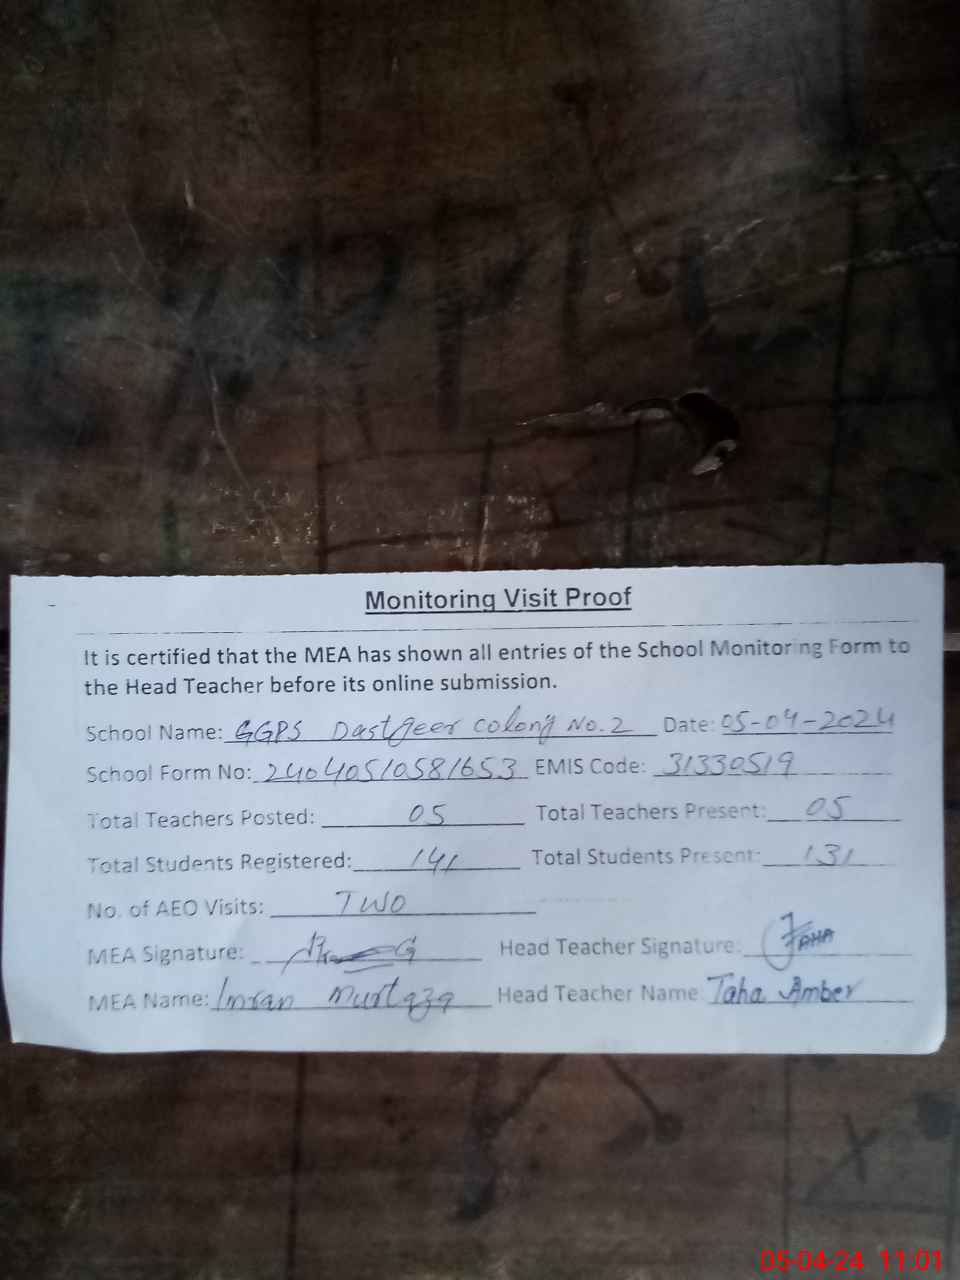 Monitoring Visit Proof
It is certified that the MEA has shown all entries of the School Monitoring Form to
the Head Teacher before its online submission.
School Name: GGPS Dastgeer colony No. 2 Date: 05-04-2024
School Form No: 24040510581653 EMIS Code: 31330519
Total Teachers Posted: 05 Total Teachers Present: 05
Total Students Registered: 141 Total Students Present: 131
No. of AEO Visits: TWO
MEA Signature: Head Teacher Signature: TAHA
MEA Name: Imran Murtaza Head Teacher Name Taha Amber
05-04-24 11:01